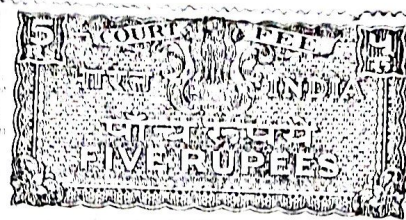 ५ COURT FEE 5
भारत INDIA
पाँच रुपये
FIVE RUPEES